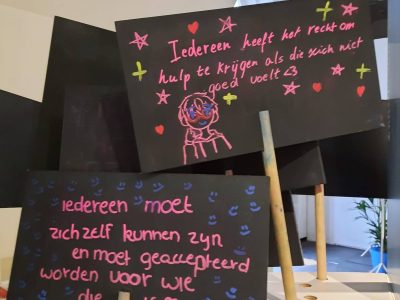 Iedereen heeft het recht om
hulp te krijgen als die zich niet
goed voelt <3
iedereen moet
zichzelf kunnen zijn
en moet geaccepteerd
worden voor wie
die